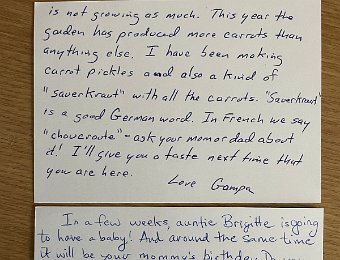 is not growing as much. This year the
garden has produced more carrots than
anything else. I have been making
carrot pickles and also a kind of
"sauerkraut" with all the carrots. "Sauerkraut"
is a good German word. In French we say
"choucroute" - ask your mom or dad about
it! I'll give you a taste next time that
you are here.
Love Gampa
In a few weeks, auntie Brigitte is going
to have a baby! And around the same time
it will be your mommy's birthday. Do you